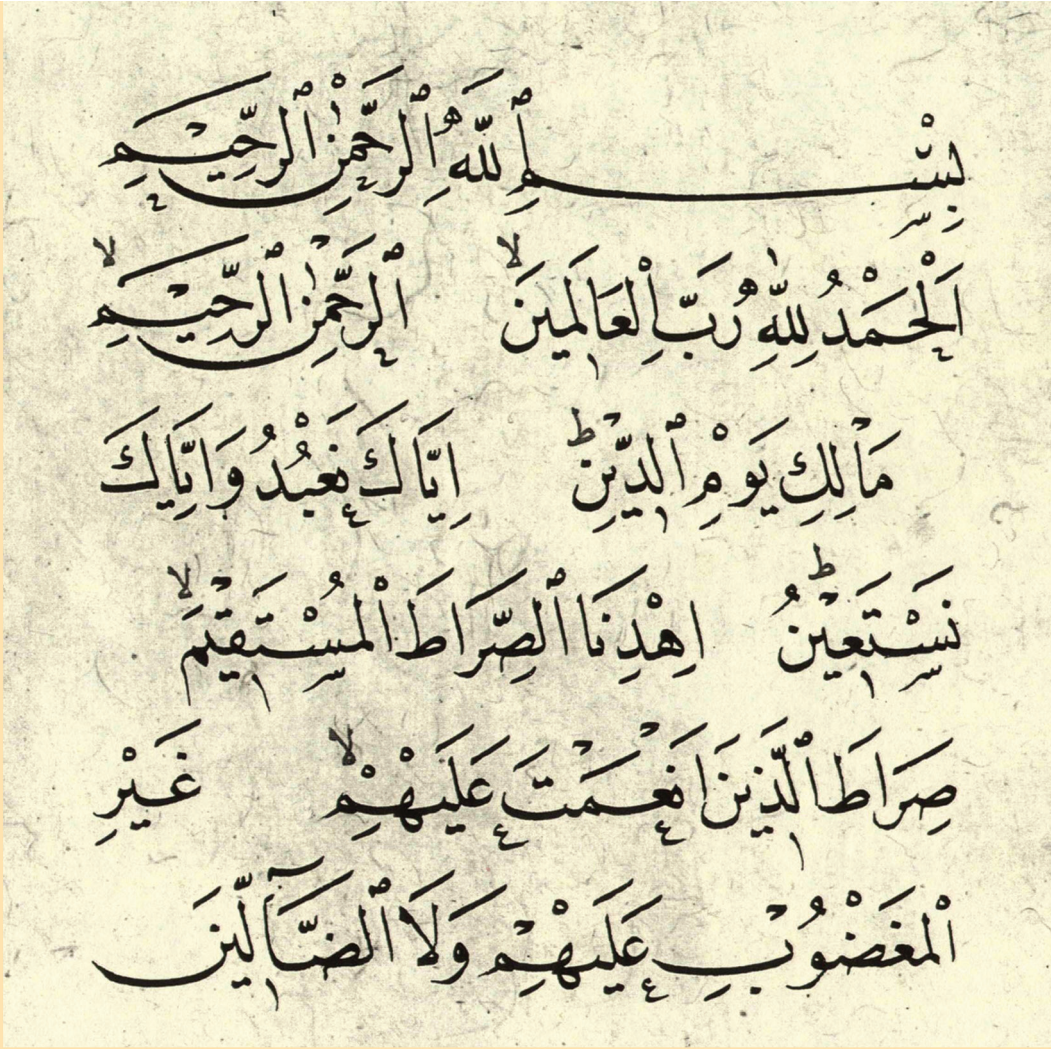 بِسْمِ ٱللّٰهِ ٱلرَّحْمٰنِ ٱلرَّحِيمِ
اَلْحَمْدُ لِلّٰهِ رَبِّ الْعَالَمِينَ ۙ ٱلرَّحْمٰنِ ٱلرَّحِيمِ ۙ
مَالِكِ يَوْمِ ٱلدِّينِ ؕ اِيَّاكَ نَعْبُدُ وَاِيَّاكَ
نَسْتَعِينُ ؕ اِهْدِنَا ٱلصِّرَاطَ ٱلْمُسْتَقِيمَ ۙ
صِرَاطَ ٱلَّذِينَ اَنْعَمْتَ عَلَيْهِمْ ۙ غَيْرِ
ٱلْمَغْضُوبِ عَلَيْهِمْ وَلَا ٱلضَّآلِّينَ